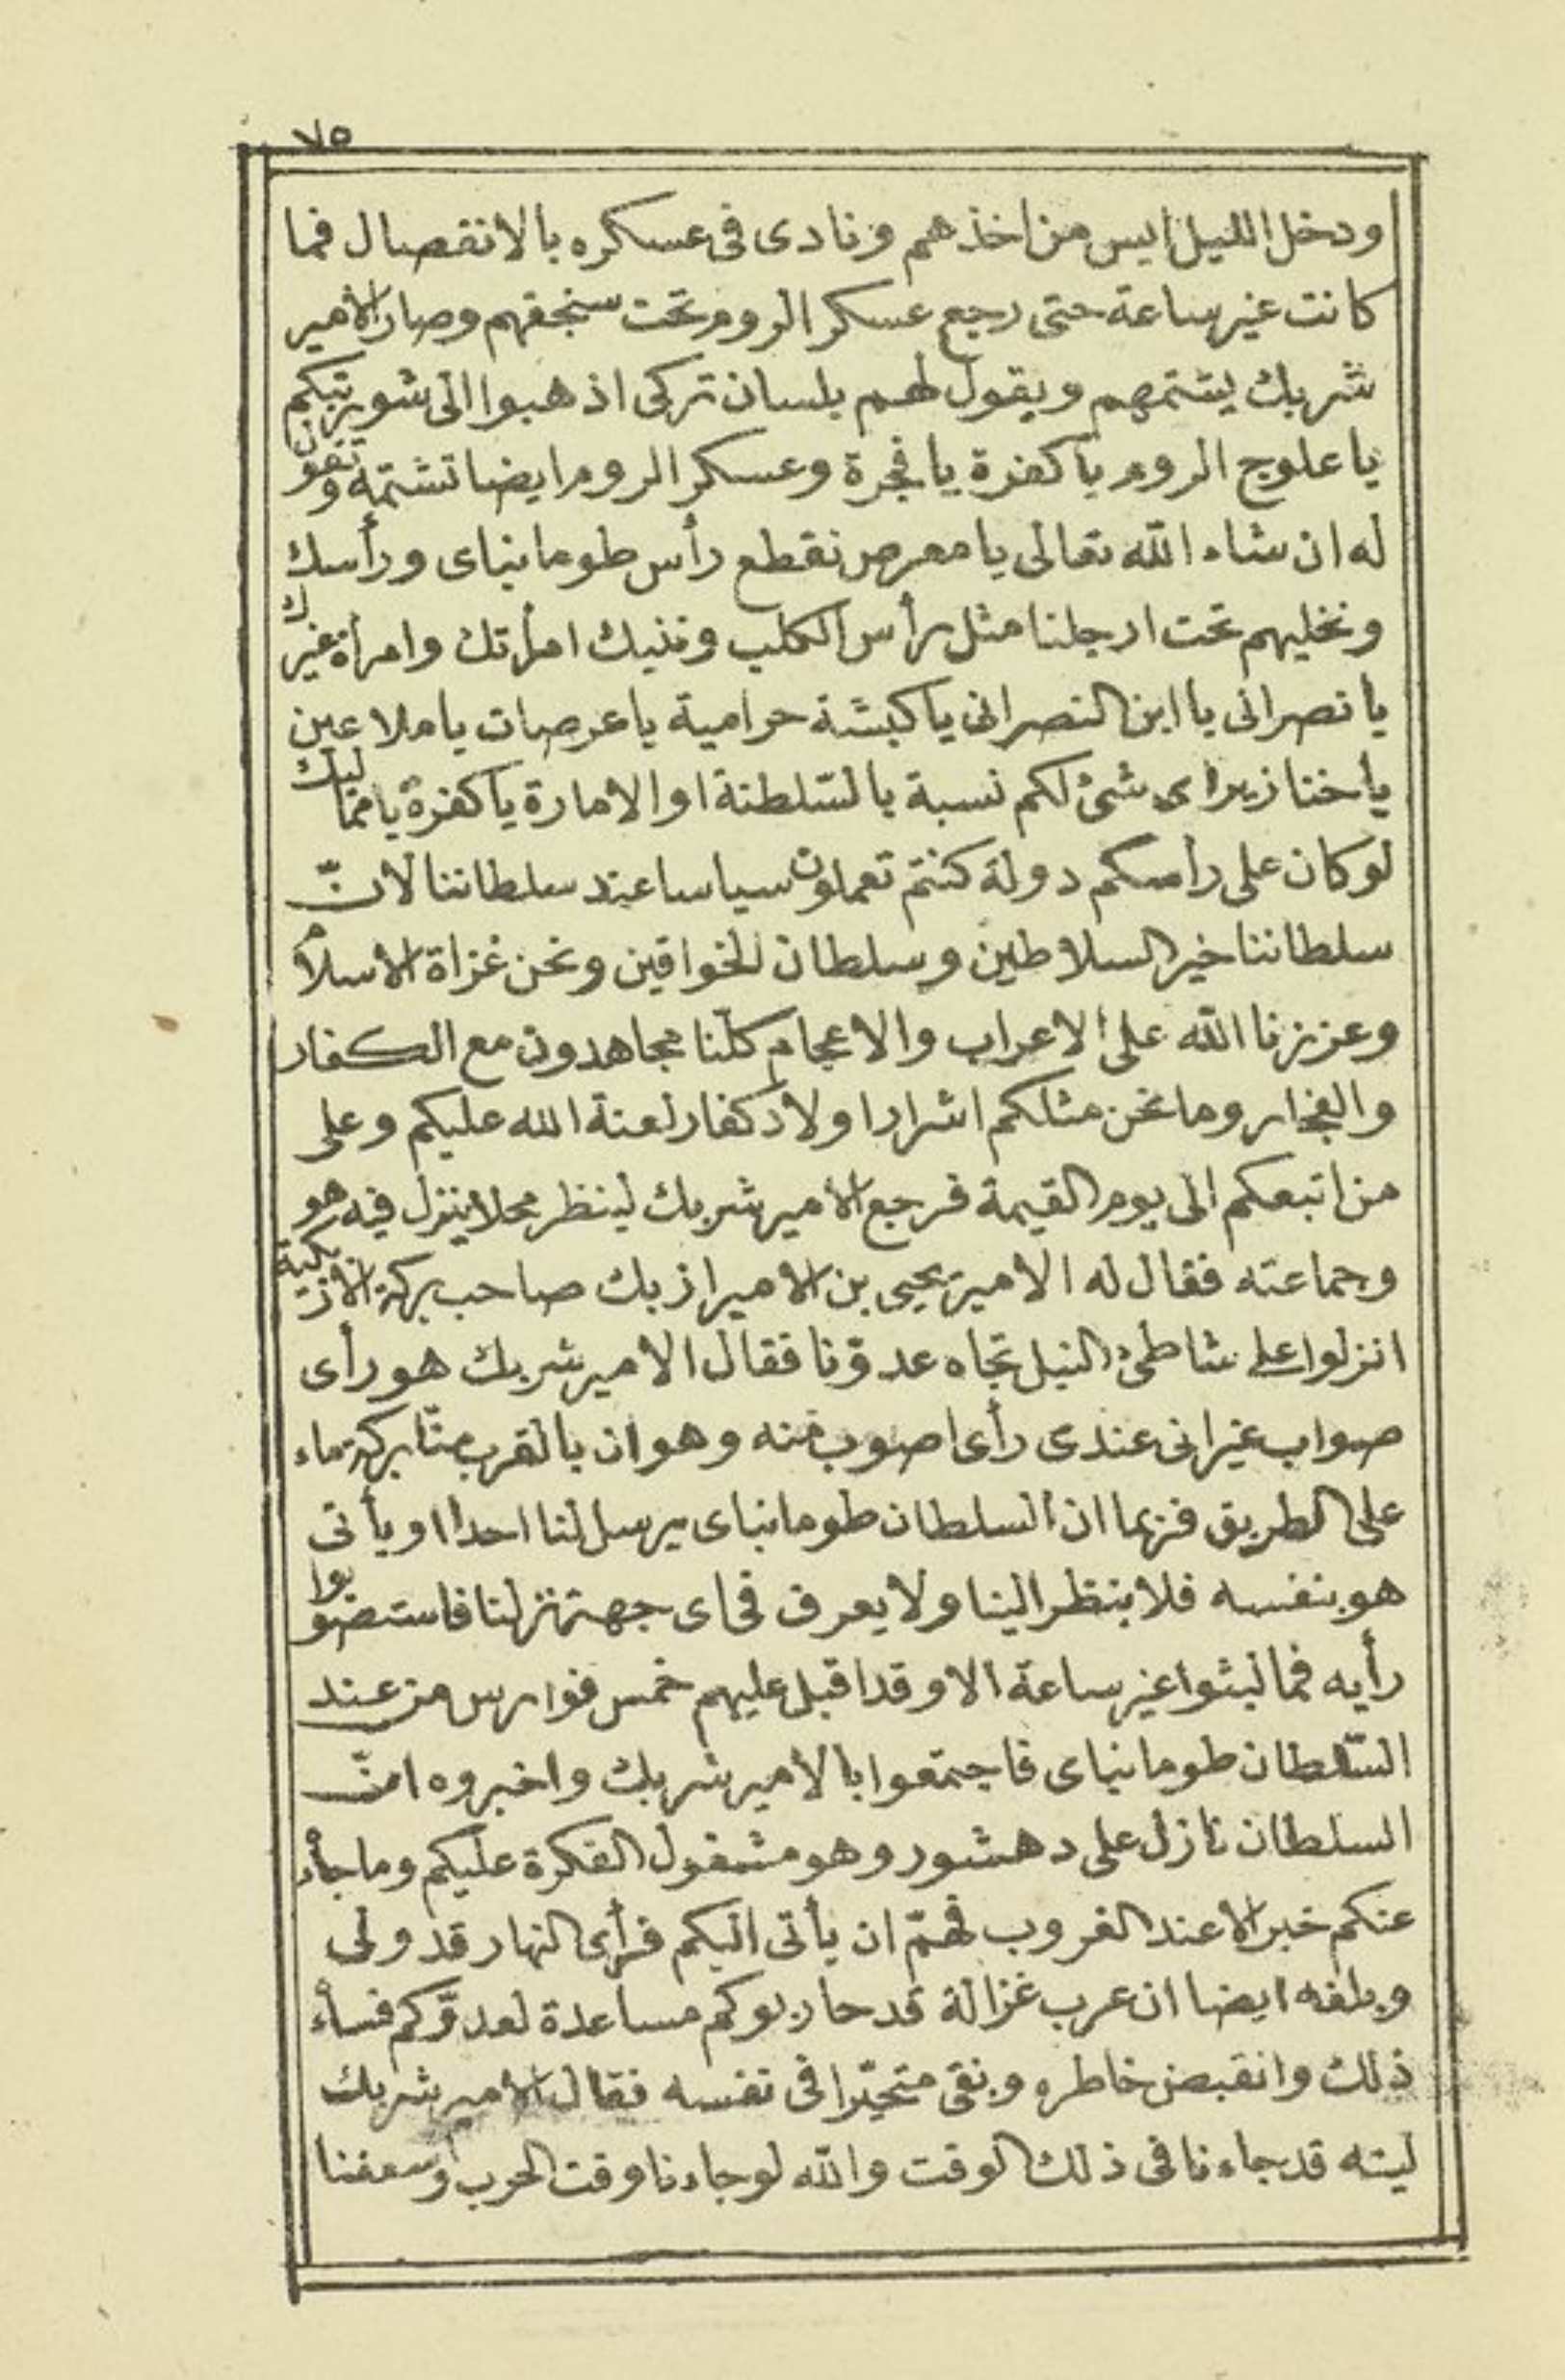 ٧٥
ودخل الليل ايس من اخذهم ونادى فى عسكره بالانفصال فما
كانت غير ساعة حتى رجع عسكر الروم تحت سنجقهم وصار الامير
شربك يشتمهم ويقول لهم بلسان تركى اذهبوا الى شوربتكم
يا علوج الروم يا كفرة يا فجرة وعسكر الروم ايضا تشتمه وتقول
له ان شاء الله تعالى يا معرص نقطع رأس طومانباى ورأسك
ونخليهم تحت ارجلنا مثل رأس الكلب وننيك امرأتك وامرأة غيرك
يا نصرانى يا ابن النصرانى يا كبشة حرامية يا عرصات يا ملاعين
يا خنازير اى شئ لكم نسبة بالسّلطنة او الامارة يا كفرة يا مماليك
لو كان على رأسكم دولة كنتم تعملون سياسا عند سلطاننا لانّ
سلطاننا خير السلاطين وسلطان الخواقين ونحن غزاة الاسلام
وعززنا الله على الاعراب والاعجام كلّنا مجاهدون مع الكفار
والفجار وما نحن مثلكم اشرار اولاد كفار لعنة الله عليكم وعلى
من اتبعكم الى يوم القيمة فرجع الامير شربك لينظر محلا ينزل فيه هو
وجماعته فقال له الامير يحيى بن الامير ازبك صاحب بركة الازبكية
انزلوا على شاطئ النيل تجاه عدوّنا فقال الامير شربك هو رأى
صواب غير انى عندى رأى اصوب منه وهو ان بالقرب منّا بركة ماء
على الطريق فربما ان السلطان طومانباى يرسل لنا احدا او يأتى
هو بنفسه فلا ينظر الينا ولا يعرف فى اى جهة نزلنا فاستصوبوا
رأيه فما لبثوا غير ساعة الا وقد اقبل عليهم خمس فوارس من عند
السّلطان طومانباى فاجتمعوا بالامير شربك واخبروه انّ
السلطان نازل على دهشور وهو مشغول الفكرة عليكم وما جاء
عنكم خبر الا عند الغروب فهمّ ان يأتى اليكم فرأى النهار قد ولى
وبلغه ايضا ان عرب غزالة قد حاربوكم مساعدة لعدوّكم فساء
ذلك وانقبض خاطره وبقى متحيّرا فى نفسه فقال الامير شربك
ليته قد جاءنا فى ذلك الوقت والله لو جاءنا وقت الحرب وسعفنا